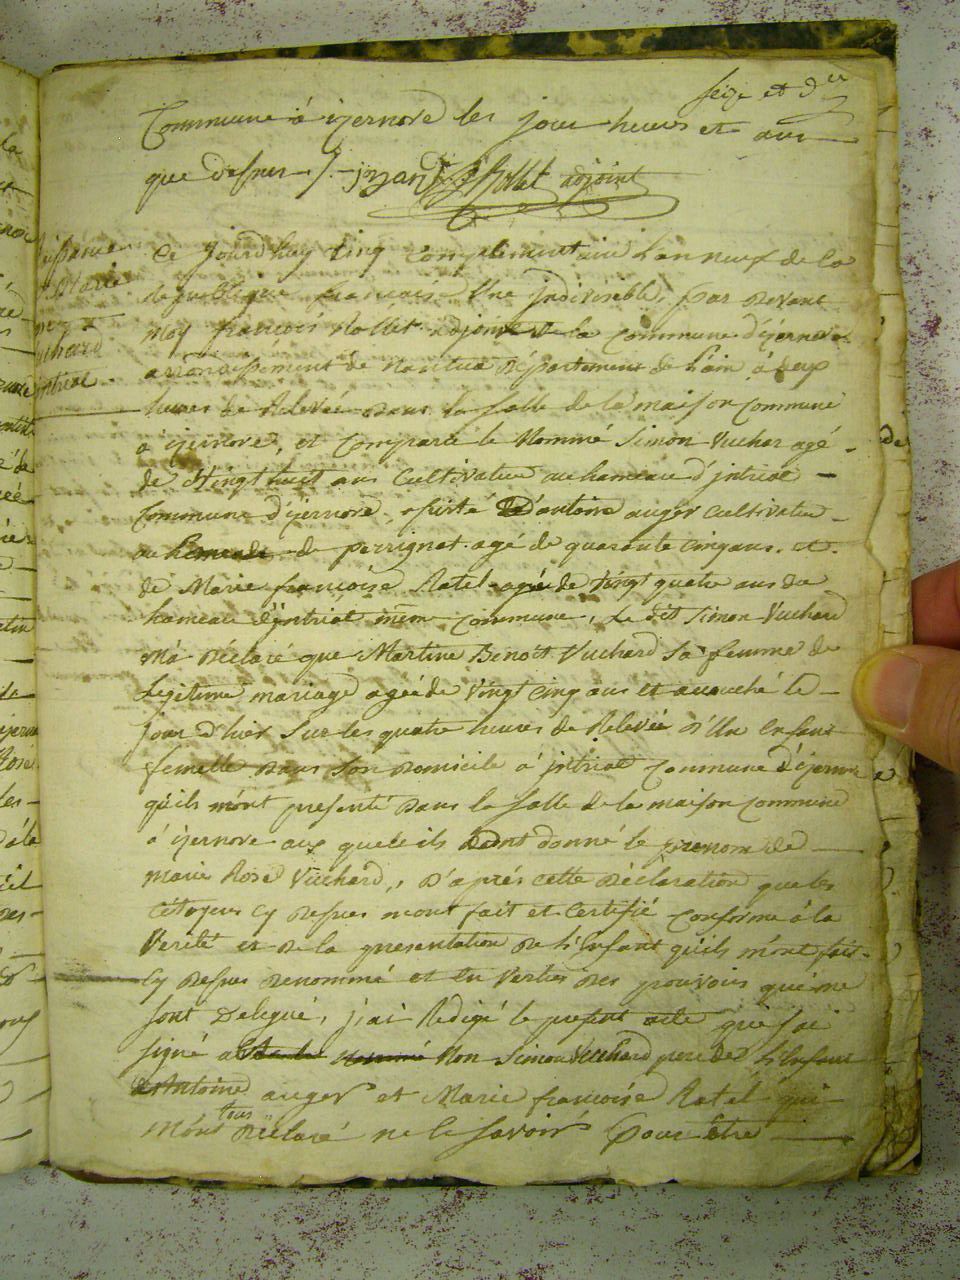 seize et der
Commune à izernore les jour heures et ans
que desus /. jozand f Rollet adjoint
Ce jourd'huy cinq complementaire l'an neuf de la
Republique francais Une indivisible, par devant
Moy francois Rollet adjoint de la commune d'izernore
arrondissement de Nantua département de L'ain à deux
heures de Relevée dans la salle de la maison commune
à izernore, et comparu le Nommé Simon Vuchar agé
de Vingt huit ans Cultivateur au hameau d'intriat
Commune d'izernore, assisté d'antoine auger cultivateur
au hameau de perrignat agé de quarante cinq ans et
de Marie francoise Ratel agée de vingt quatre ans du
hameau d'intriat mêm commune, Le dit Simon Vuchard
M'a déclaré que Martine Benoit Vuchard sa femme de
Legitime mariage agée de vingt cinq ans et acouché le
jour d'hier sur les quatre heures de Relevée d'Un enfant
femelle dans son domicile à intriat commune d'izernore
qu'ils m'ont presenté dans la salle de la maison commune
à izernore aux quel ils ont donné le prenom de
marie Rose Vuchard, D'aprés cette déclaration que les
Citoyens cy desus mont fait et certifié conforme à la
Verité et de la presentation de L'enfant qu'ils m'ont fait
cy desus denommé et en Vertus des pouvoirs qui me
sont Delegué, j'ai Redigé le present acte que j'ai
signé Non Simon Vuchard pere de L'enfant
Antoine auger et Marie francoise Ratel qui
m'ont tous declaré ne le savoir pour être
Vuchard
intriat